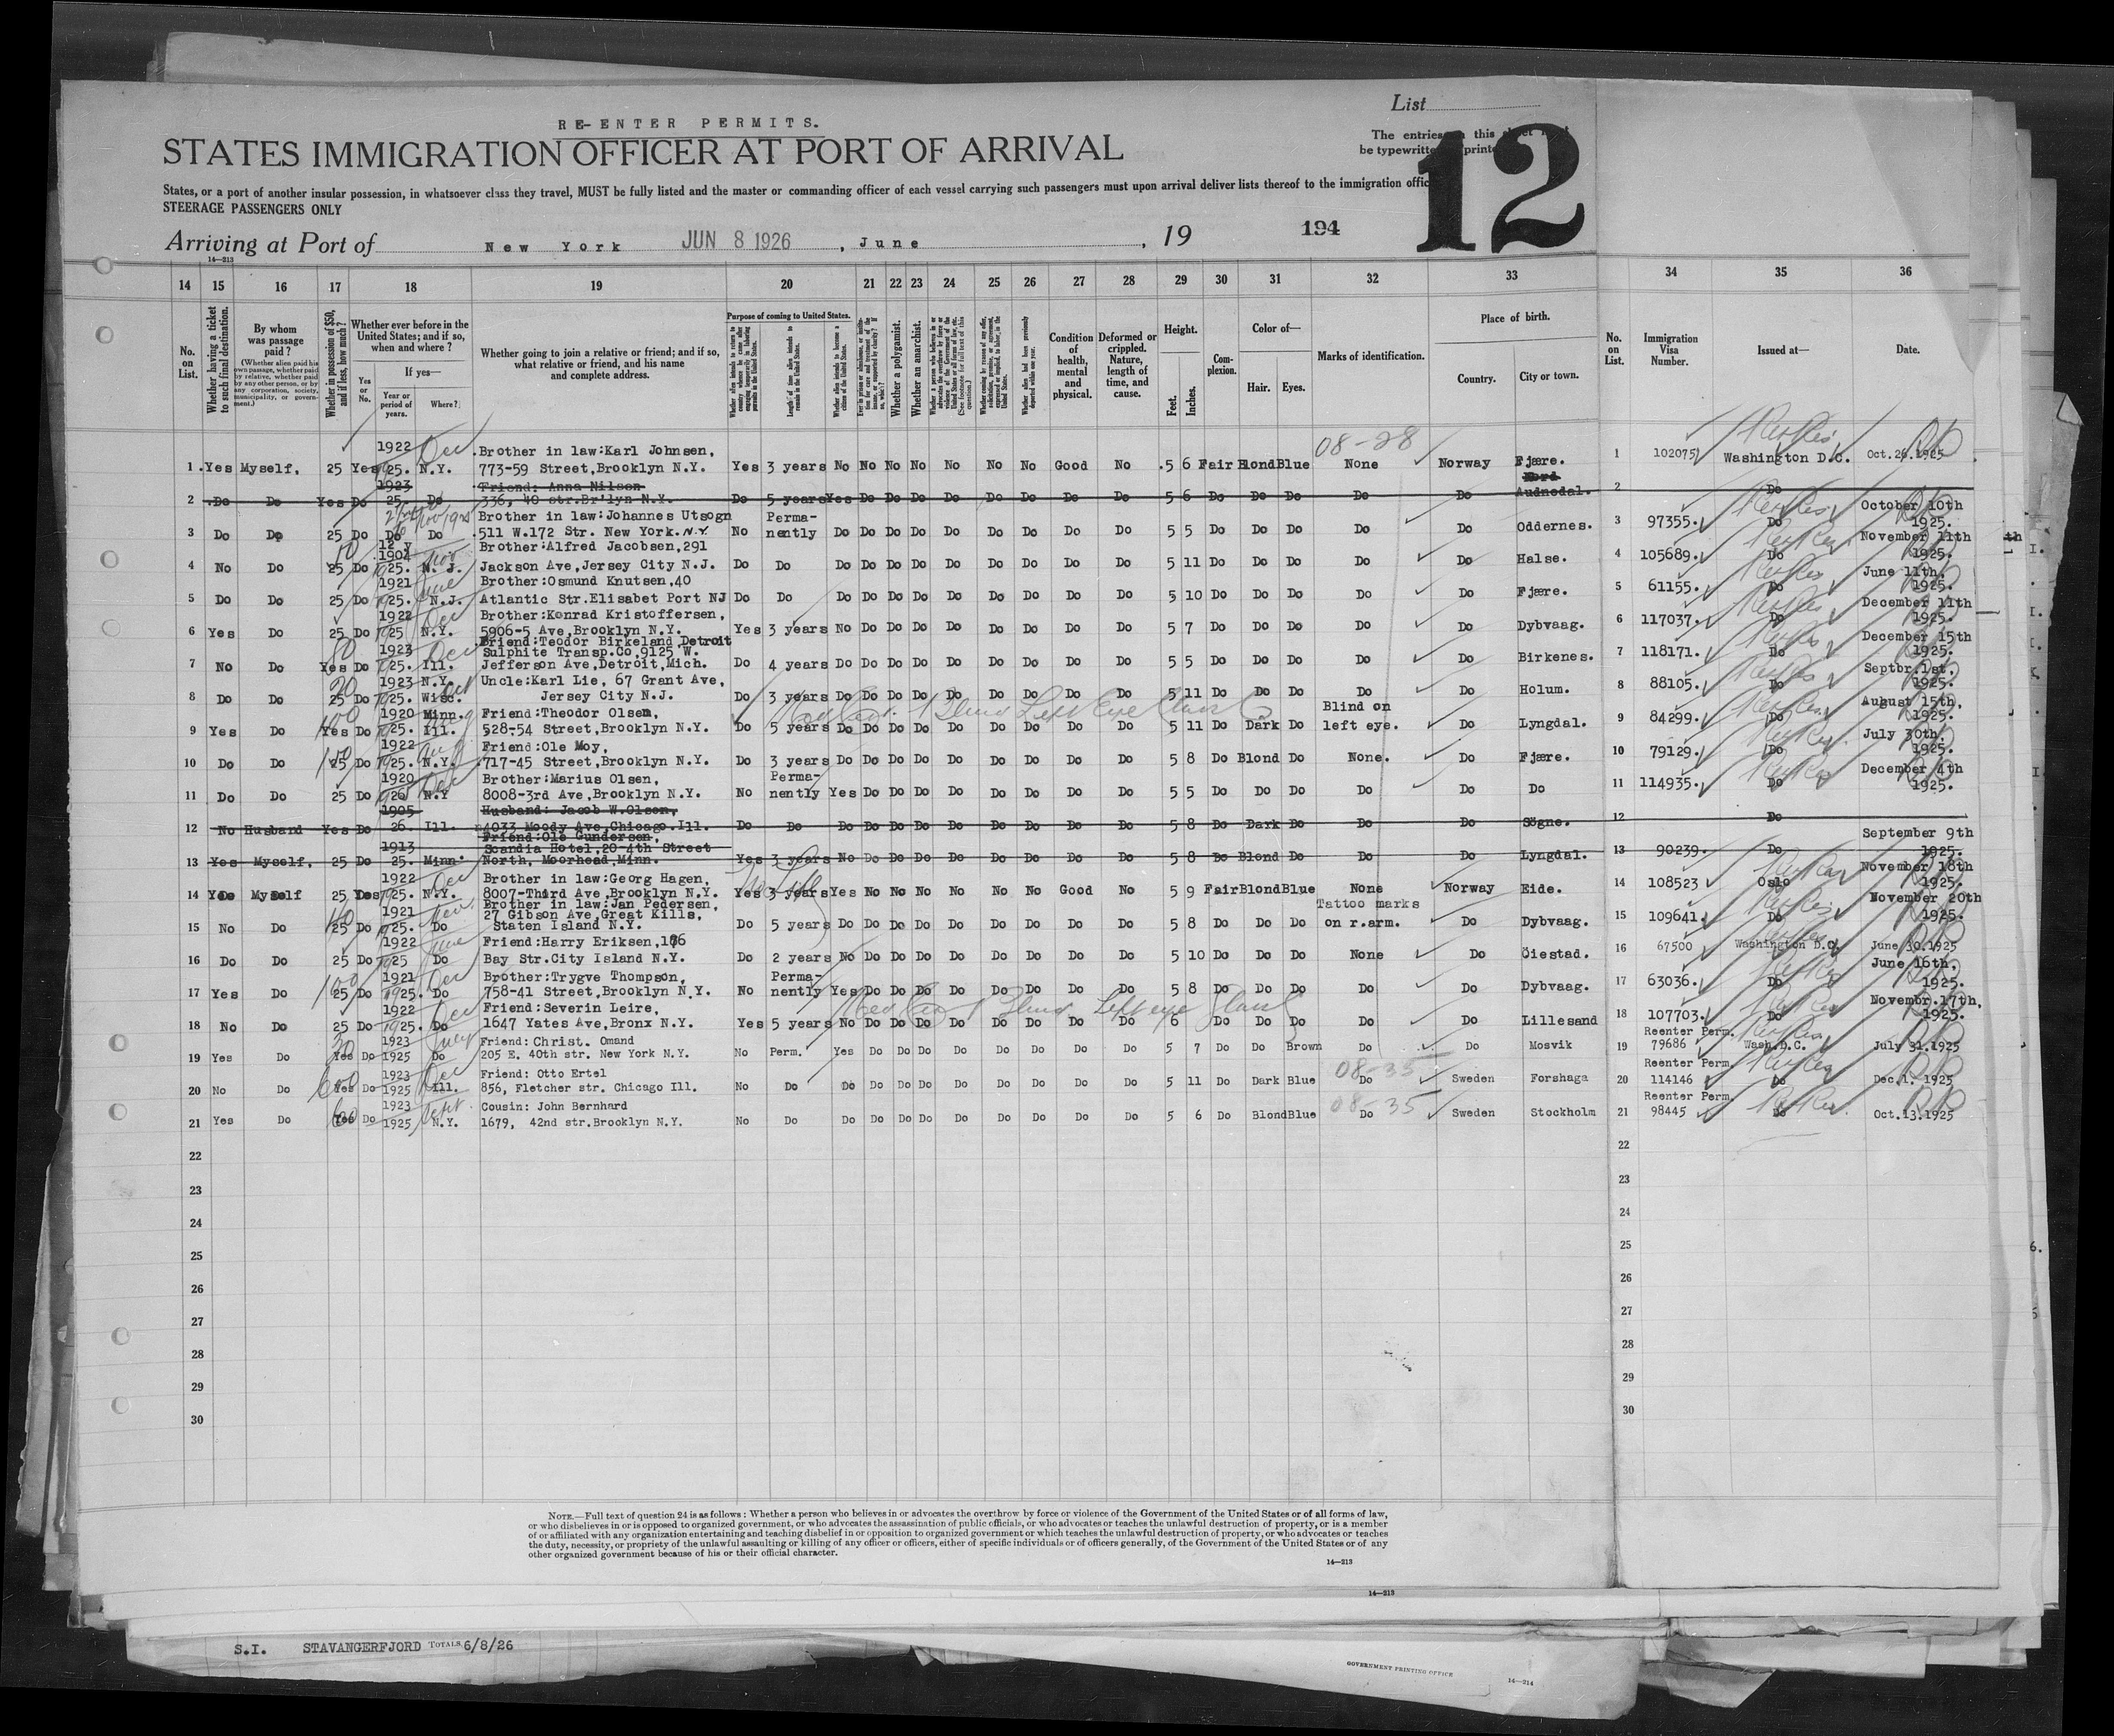 List
RE-ENTER PERMITS.
STATES IMMIGRATION OFFICER AT PORT OF ARRIVAL
The entries on this sheet must
be typewritten or printed.
12
States, or a port of another insular possession, in whatsoever class they travel, MUST be fully listed and the master or commanding officer of each vessel carrying such passengers must upon arrival deliver lists thereof to the immigration officer
STEERAGE PASSENGERS ONLY
Arriving at Port of New York JUN 8 1926, June, 19 194
14—213
14 15 16 17 18 19 20 21 22 23 24 25 26 27 28 29 30 31 32 33 34 35 36
No. on List.
Whether having a ticket to such final destination.
By whom was passage paid?
(Whether alien paid his own passage, whether paid by relative, whether paid by any other person, or by any corporation, society, municipality, or government.)
Whether in possession of $50, and if less, how much?
Whether ever before in the United States; and if so, when and where?
Yes or No.
If yes—
Year or period of years.
Where?
Whether going to join a relative or friend; and if so, what relative or friend, and his name and complete address.
Purpose of coming to United States.
Length of time alien intends to remain in the United States.
Whether alien intends to become a citizen of the United States.
Whether a polygamist.
Whether an anarchist.
Condition of health, mental and physical.
Deformed or crippled. Nature, length of time, and cause.
Height.
Feet. Inches.
Complexion.
Color of—
Hair. Eyes.
Marks of identification.
Place of birth.
Country. City or town.
No. on List.
Immigration Visa Number.
Issued at—
Date.
08-28
1 Yes Myself, 25 Yes 1922 25. N.Y. Dec Brother in law:Karl Johnsen, 773-59 Street,Brooklyn N.Y. Yes 3 years No No No No No No Good No 5 6 Fair Blond Blue None Norway Fjære. 1 102075 Washington D.C. Oct.26.1925
2 Do Do Yes Do 1923 25. Do Friend: Anna Nilson 336, 40 str.Br'lyn N.Y. Do 5 years Yes Do Do Do Do Do Do Do 5 6 Do Do Do Do Do Nord Audnedal. 2 Do
3 Do Do 25 Do Do Do Brother in law:Johannes Utsogn 511 W.172 Str. New York.N.Y. No Permanently Do Do Do Do Do Do Do Do 5 5 Do Do Do Do Do Oddernes. 3 97355. Do October 10th 1925.
4 No Do 25 Do 12 y 1904 25. N.J. Nov Brother:Alfred Jacobsen,291 Jackson Ave,Jersey City N.J. Do Do Do Do Do Do Do Do Do Do 5 11 Do Do Do Do Do Halse. 4 105689. Do November 11th 1925.
5 Do Do 25 Do 1921 25. N.J. June Brother:Osmund Knutsen,40 Atlantic Str.Elisabet Port NJ Do Do Do Do Do Do Do Do Do Do 5 10 Do Do Do Do Do Fjære. 5 61155. Do June 11th, 1925.
6 Yes Do 25 Do 1922 1925 N.Y. Dec Brother:Konrad Kristoffersen, 5906-5 Ave,Brooklyn N.Y. Yes 3 years No Do Do Do Do Do Do Do 5 7 Do Do Do Do Do Dybvaag. 6 117037. Do December 11th 1925.
7 No Do Yes Do 1923 25. Ill. Dec Friend:Teodor Birkeland,Detroit Sulphite Transp.Co,9125 W. Jefferson Ave,Detroit,Mich. Do 4 years Do Do Do Do Do Do Do Do 5 5 Do Do Do Do Do Birkenes. 7 118171. Do December 15th 1925.
8 Do Do Do 1923 1925. N.Y. Wisc. Uncle:Karl Lie, 67 Grant Ave, Jersey City N.J. Do 3 years Do Do Do Do Do Do Do Do 5 11 Do Do Do Do Do Holum. 8 88105. Do Septbr.1st. 1925.
9 Yes Do 100 Yes Do 1920 25. Minn. Ill. Aug Friend:Theodor Olsen, 528-54 Street,Brooklyn N.Y. Do 5 years Do Do Do Do Do Do Do Do 5 11 Do Dark Do Blind on left eye. Do Lyngdal. 9 84299. Do August 15th, 1925.
10 Do Do 100 25 Do 1922 1925. N.Y. Aug Friend:Ole Moy, 717-45 Street,Brooklyn N.Y. Do 3 years Do Do Do Do Do Do Do Do 5 8 Do Blond Do None. Do Fjære. 10 79129. Do July 30th, 1925.
11 Do Do 25 Do 1920 N.Y Dec Brother:Marius Olsen, 8008-3rd Ave,Brooklyn N.Y. No Permanently Yes Do Do Do Do Do Do Do 5 5 Do Do Do Do Do Do 11 114935. Do December 4th 1925.
12 No Husband Yes Do 1905 26. Ill. Husband: Jacob W.Olsen, 4033 Moody Ave,Chicago.Ill. Do Do Do Do Do Do Do Do Do Do 5 8 Do Dark Do Do Do Sögne. 12 Do
13 Yes Myself, 25 Do 1913 25. Minn. Friend:Ole Gundersen, Scandia Hotel,20-4th Street North, Moorhead,Minn. Yes 3 years No Do Do Do Do Do Do Do 5 8 Do Blond Do Do Do Lyngdal. 13 90239. Do September 9th 1925.
14 Yes Myself 25 Yes 1922 1925. N.Y. Dec Brother in law:Georg Hagen, 8007-Third Ave,Brooklyn N.Y. Yes 3 years Yes No No No No No Good No 5 9 Fair Blond Blue None Norway Eide. 14 108523 Oslo November 18th 1925.
15 No Do 25 Do 1921 1925. Do Brother in law:Jan Pedersen, 27 Gibson Ave,Great Kills, Staten Island N.Y. Do 5 years Do Do Do Do Do Do Do Do 5 8 Do Do Do Tattoo marks on r.arm. Do Dybvaag. 15 109641. Do November 20th 1925.
16 Do Do 25 Do 1922 1925 Do June Friend:Harry Eriksen, Bay Str.City Island N.Y. Do 2 years No Do Do Do Do Do Do Do 5 10 Do Do Do None Do Öiestad. 16 67500 Washington D.C. June 30.1925
17 Yes Do 100 25 Do 1921 1925. Do Dec Brother:Trygve Thompson, 758-41 Street,Brooklyn N.Y. No Permanently Yes Do Do Do Do Do Do Do 5 8 Do Do Do Do Do Dybvaag. 17 63036. Do June 16th, 1925.
18 No Do 25 Do 1922 1925. Do Dec Friend:Severin Leire, 1647 Yates Ave,Bronx N.Y. Yes 5 years No Do Do Do Do Do Do Do 6 Do Do Do Do Do Lillesand 18 107703. Do Novembr.17th, 1925.
19 Yes Do Yes Do 1923 1925 Do July Friend: Christ. Omand 205 E. 40th str. New York N.Y. No Perm. Yes Do Do Do Do Do Do Do 5 7 Do Do Brown Do Do Mosvik 19 Reenter Perm. 79686 Wash.D.C. July 31.1925
08-35
20 No Do 600 Yes Do 1923 1925 Ill. Dec Friend: Otto Ertel 856, Fletcher str. Chicago Ill. No Do Do Do Do Do Do Do Do Do 5 11 Do Dark Blue Do Sweden Forshaga 20 Reenter Perm. 114146 Do Dec.1. 1925
08-35
21 Yes Do Yes Do 1923 1925 N.Y. Sept. Cousin: John Bernhard 1679, 42nd str.Brooklyn N.Y. No Do Do Do Do Do Do Do Do Do 5 6 Do Blond Blue Do Sweden Stockholm 21 Reenter Perm. 98445 Do Oct.13.1925
22 22
23 23
24 24
25 25
26 26
27 27
28 28
29 29
30 30
NOTE.—Full text of question 24 is as follows: Whether a person who believes in or advocates the overthrow by force or violence of the Government of the United States or of all forms of law,
or who disbelieves in or is opposed to organized government, or who advocates the assassination of public officials, or who advocates or teaches the unlawful destruction of property, or is a member
of or affiliated with any organization entertaining and teaching disbelief in or opposition to organized government or which teaches the unlawful destruction of property, or who advocates or teaches
the duty, necessity, or propriety of the unlawful assaulting or killing of any officer or officers, either of specific individuals or of officers generally, of the Government of the United States or of any
other organized government because of his or their official character.
14—213
14—213
S.I. STAVANGERFJORD TOTALS 6/8/26
GOVERNMENT PRINTING OFFICE
14—214